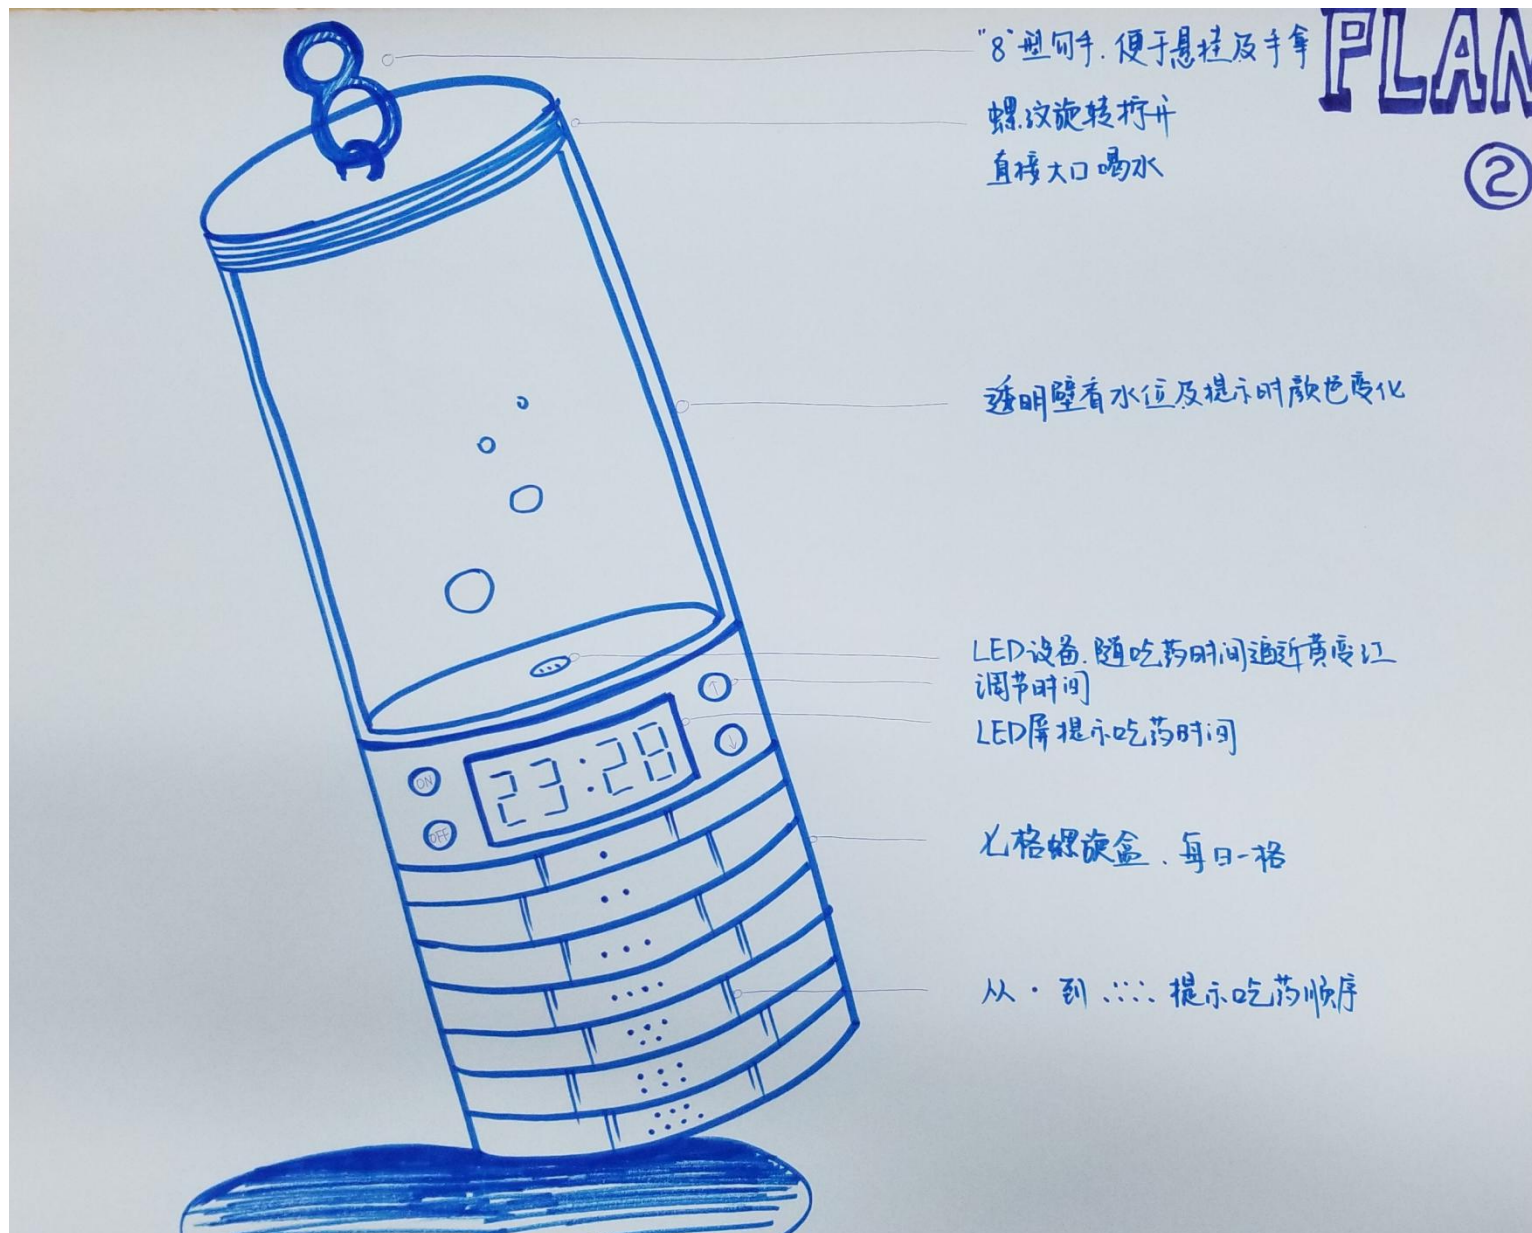 "8"型勾手.便于悬挂及手拿
PLAN
②
螺纹旋转拧开
直接大口喝水
透明壁看水位及提示时颜色变化
LED设备.随吃药时间逼近黄变红
调节时间
LED屏提示吃药时间
↑
↓
ON
OFF
23:28
七格螺旋盒、每日一格
从·到.:::.提示吃药顺序